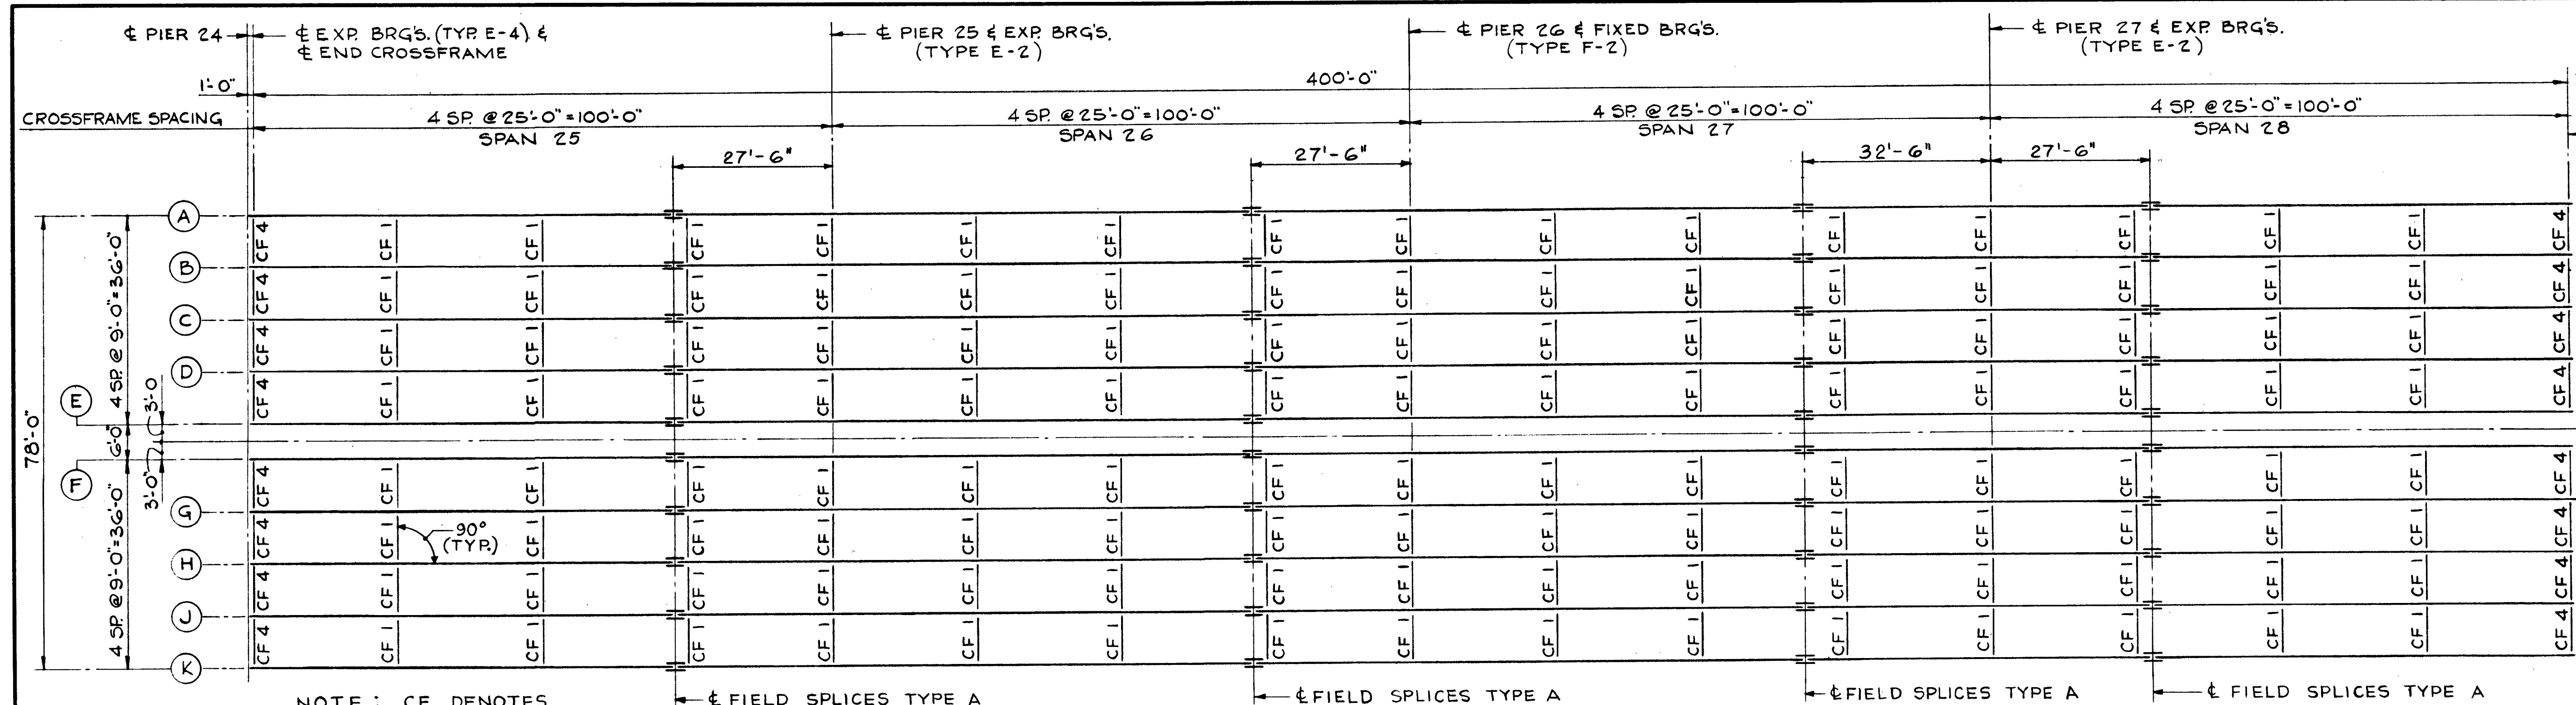 ℄ PIER 24
℄ EXP. BRG'S. (TYP. E-4) &
℄ END CROSSFRAME
℄ PIER 25 & EXP. BRG'S.
(TYPE E-2)
℄ PIER 26 & FIXED BRG'S.
(TYPE F-2)
℄ PIER 27 & EXP. BRG'S.
(TYPE E-2)
1'-0"
400'-0"
CROSSFRAME SPACING
4 SP. @ 25'-0" = 100'-0"
SPAN 25
4 SP. @ 25'-0" = 100'-0"
SPAN 26
4 SP. @ 25'-0" = 100'-0"
SPAN 27
4 SP. @ 25'-0" = 100'-0"
SPAN 28
27'-6"
27'-6"
32'-6"
27'-6"
78'-0"
4 SP. @ 9'-0" = 36'-0"
6'-0"
3'-0
3'-0"
4 SP. @ 9'-0" = 36'-0"
A
CF 4 CF 1 CF 1 CF 1 CF 1 CF 1 CF 1 CF 1 CF 1 CF 1 CF 1 CF 1 CF 1 CF 1 CF 1 CF 1 CF 4
B
CF 4 CF 1 CF 1 CF 1 CF 1 CF 1 CF 1 CF 1 CF 1 CF 1 CF 1 CF 1 CF 1 CF 1 CF 1 CF 1 CF 4
C
CF 4 CF 1 CF 1 CF 1 CF 1 CF 1 CF 1 CF 1 CF 1 CF 1 CF 1 CF 1 CF 1 CF 1 CF 1 CF 1 CF 4
D
CF 4 CF 1 CF 1 CF 1 CF 1 CF 1 CF 1 CF 1 CF 1 CF 1 CF 1 CF 1 CF 1 CF 1 CF 1 CF 1 CF 4
E
F
CF 4 CF 1 CF 1 CF 1 CF 1 CF 1 CF 1 CF 1 CF 1 CF 1 CF 1 CF 1 CF 1 CF 1 CF 1 CF 1 CF 4
G
CF 4 CF 1 CF 1 CF 1 CF 1 CF 1 CF 1 CF 1 CF 1 CF 1 CF 1 CF 1 CF 1 CF 1 CF 1 CF 1 CF 4
90°
(TYP.)
H
CF 4 CF 1 CF 1 CF 1 CF 1 CF 1 CF 1 CF 1 CF 1 CF 1 CF 1 CF 1 CF 1 CF 1 CF 1 CF 1 CF 4
J
CF 4 CF 1 CF 1 CF 1 CF 1 CF 1 CF 1 CF 1 CF 1 CF 1 CF 1 CF 1 CF 1 CF 1 CF 1 CF 1 CF 4
K
NOTE: CF DENOTES
℄ FIELD SPLICES TYPE A
℄ FIELD SPLICES TYPE A
℄ FIELD SPLICES TYPE A
℄ FIELD SPLICES TYPE A